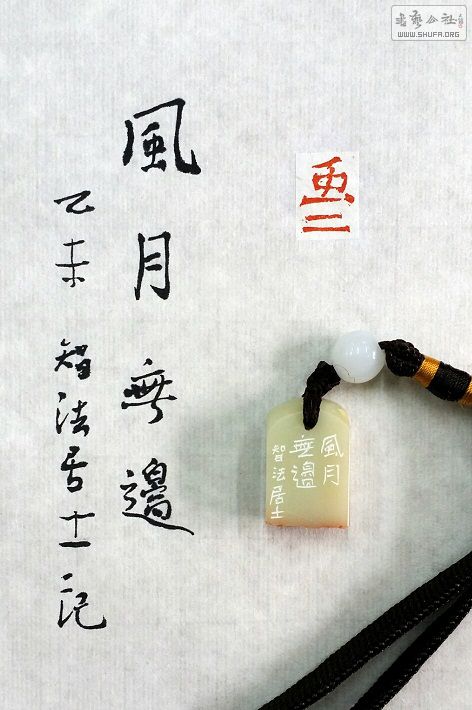 書藝公社
WWW.SHUFA.ORG
虫二
風月無邊
乙未 智法居士記
風月
無邊
智法居士